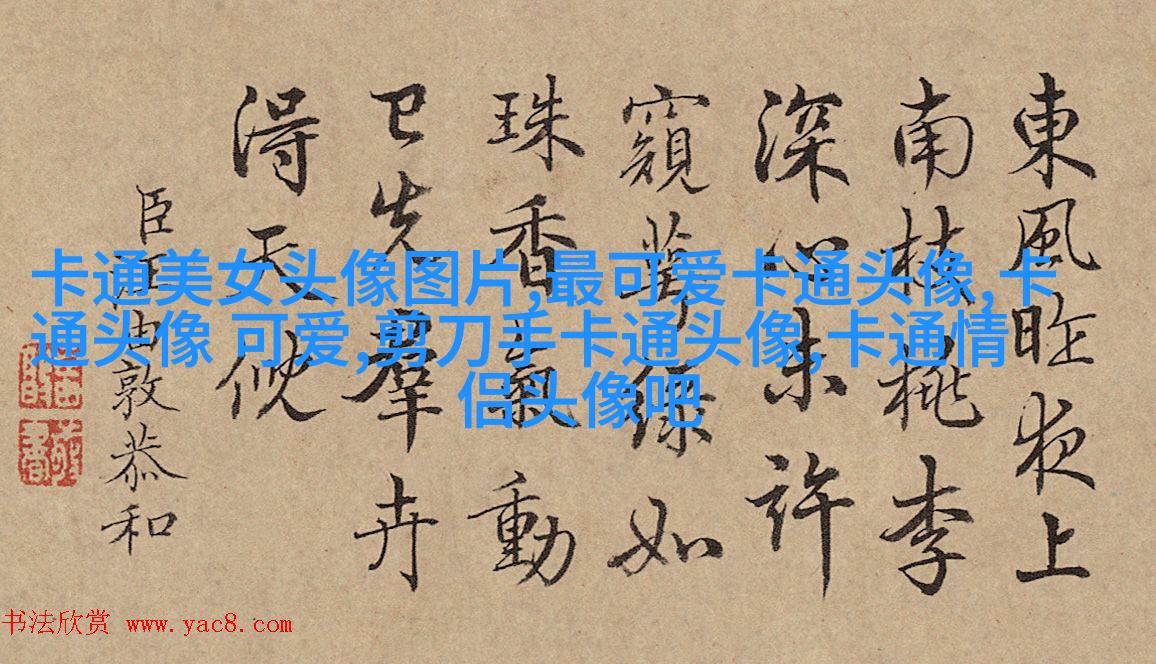 東風昨夜上
南枝桃李
深心未許
窺萼綠如
珠香氣動
已先羣卉
得天
臣汪由敦恭和
卡通美女头像图片,最可爱卡通头像,卡
通头像 可爱,剪刀手卡通头像,卡通情
侣头像吧
书法欣赏 www.yac8.com